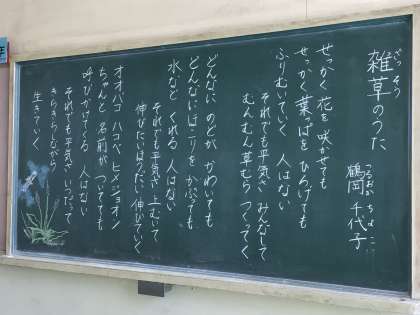 ざっそう
雑草のうた
つるおか ちよこ
鶴岡 千代子
せっかく 花を 咲かせても
せっかく 葉っぱを ひろげても
ふりむいていく 人はない
それでも平気さ みんなして
むんむん草むら つくってく
どんなに のどが かわいても
どんなにほこりを かぶっても
水など くれる 人はない
それでも平気さ 上むいて
伸びたいほうだい 伸びていく
オオバコ ハコベ ヒメジョオン
ちゃんと 名前が ついてても
呼びかけてくる 人はない
それでも平気さ いつだって
きらきらしながら
生きていく